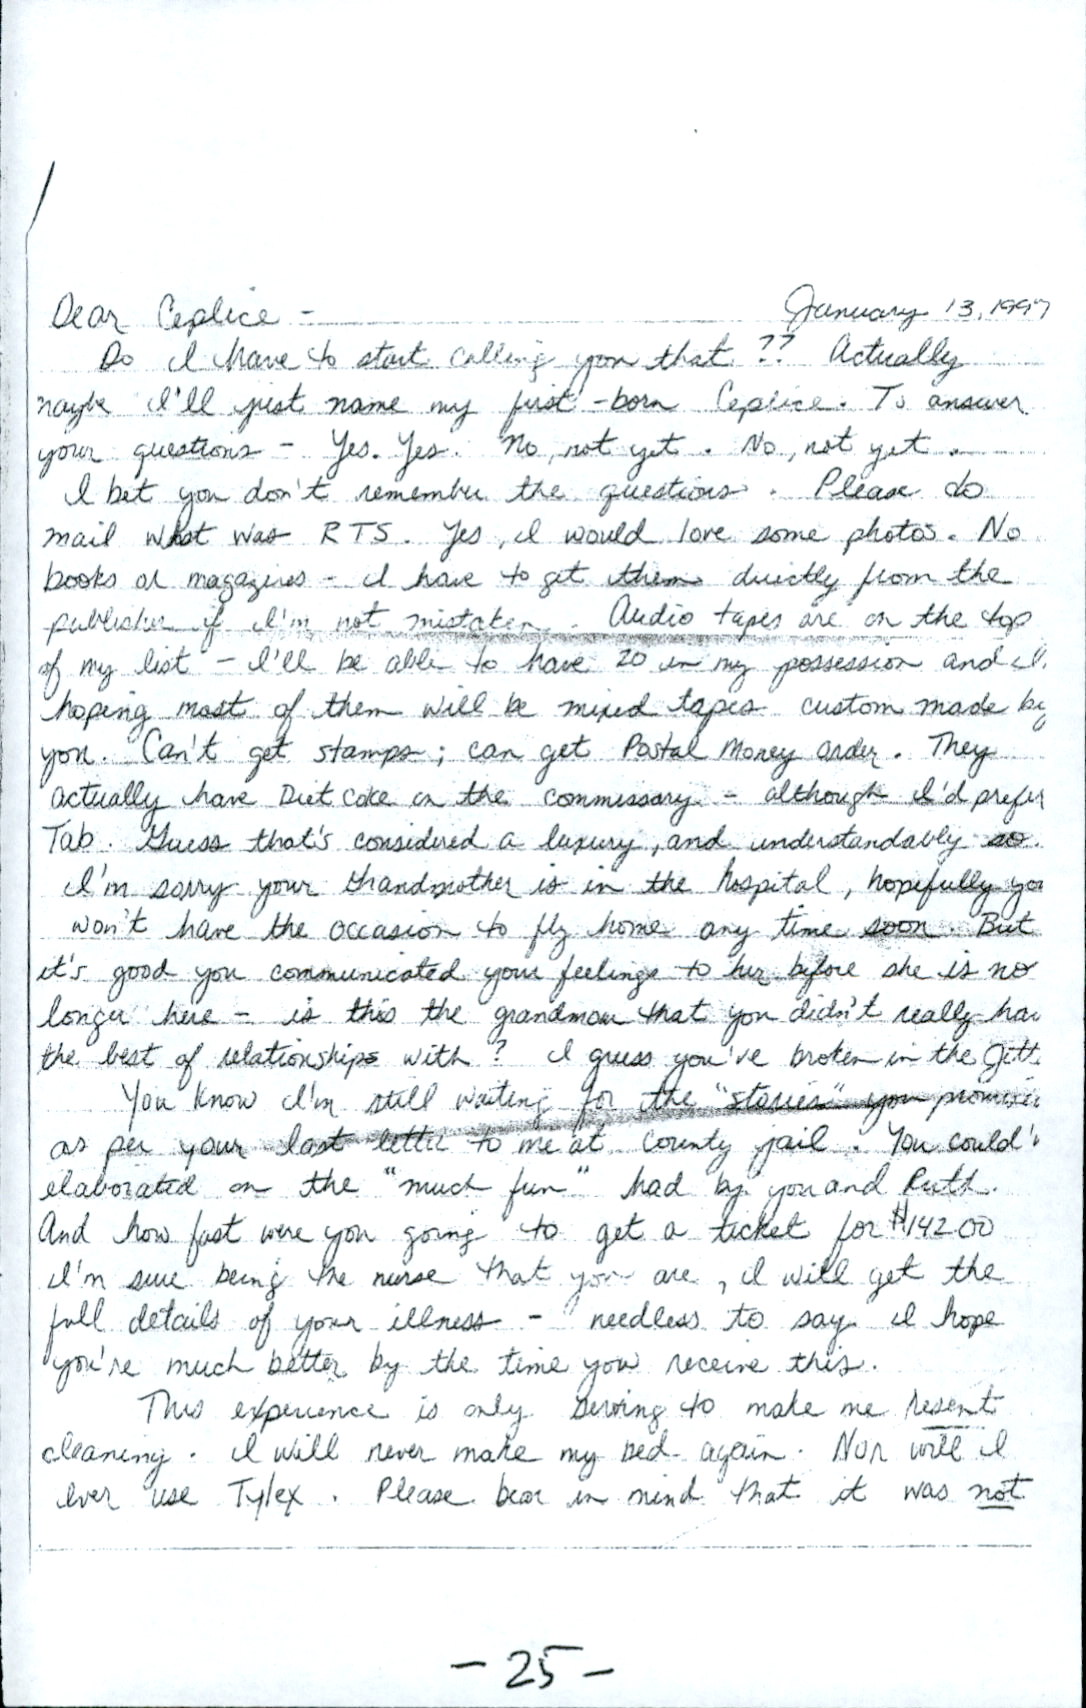 January 13, 1997
Dear Ceplice -
Do I have to start calling you that ?? Actually
maybe I'll just name my first-born Ceplice. To answer
your questions - Yes. Yes. No, not yet. No, not yet.
I bet you don't remember the questions. Please do
mail what was RTS. Yes, I would love some photos. No
books or magazines - I have to get them directly from the
publisher if I'm not mistaken. Audio tapes are on the top
of my list - I'll be able to have 20 in my possession and I'
hoping most of them will be mixed tapes custom made by
you. Can't get stamps; can get Postal Money order. They
actually have Diet Coke on the commissary - although I'd prefer
Tab. Guess that's considered a luxury, and understandably so.
I'm sorry your Grandmother is in the hospital, hopefully you
won't have the occasion to fly home any time soon. But
it's good you communicated your feelings to her before she is no
longer here - is this the grandmom that you didn't really hav
the best of relationships with? I guess you've broken in the Jett
You know I'm still waiting for the "stories" you promise
as per your last letter to me at county jail. You could'v
elaborated on the "much fun" had by you and Ruth.
And how fast were you going to get a ticket for $142.00
I'm sure being the nurse that you are, I will get the
full details of your illness - needless to say I hope
you're much better by the time you receive this.
This experience is only serving to make me resent
cleaning. I will never make my bed again. Nor will I
ever use Tylex. Please bear in mind that it was not
-25-